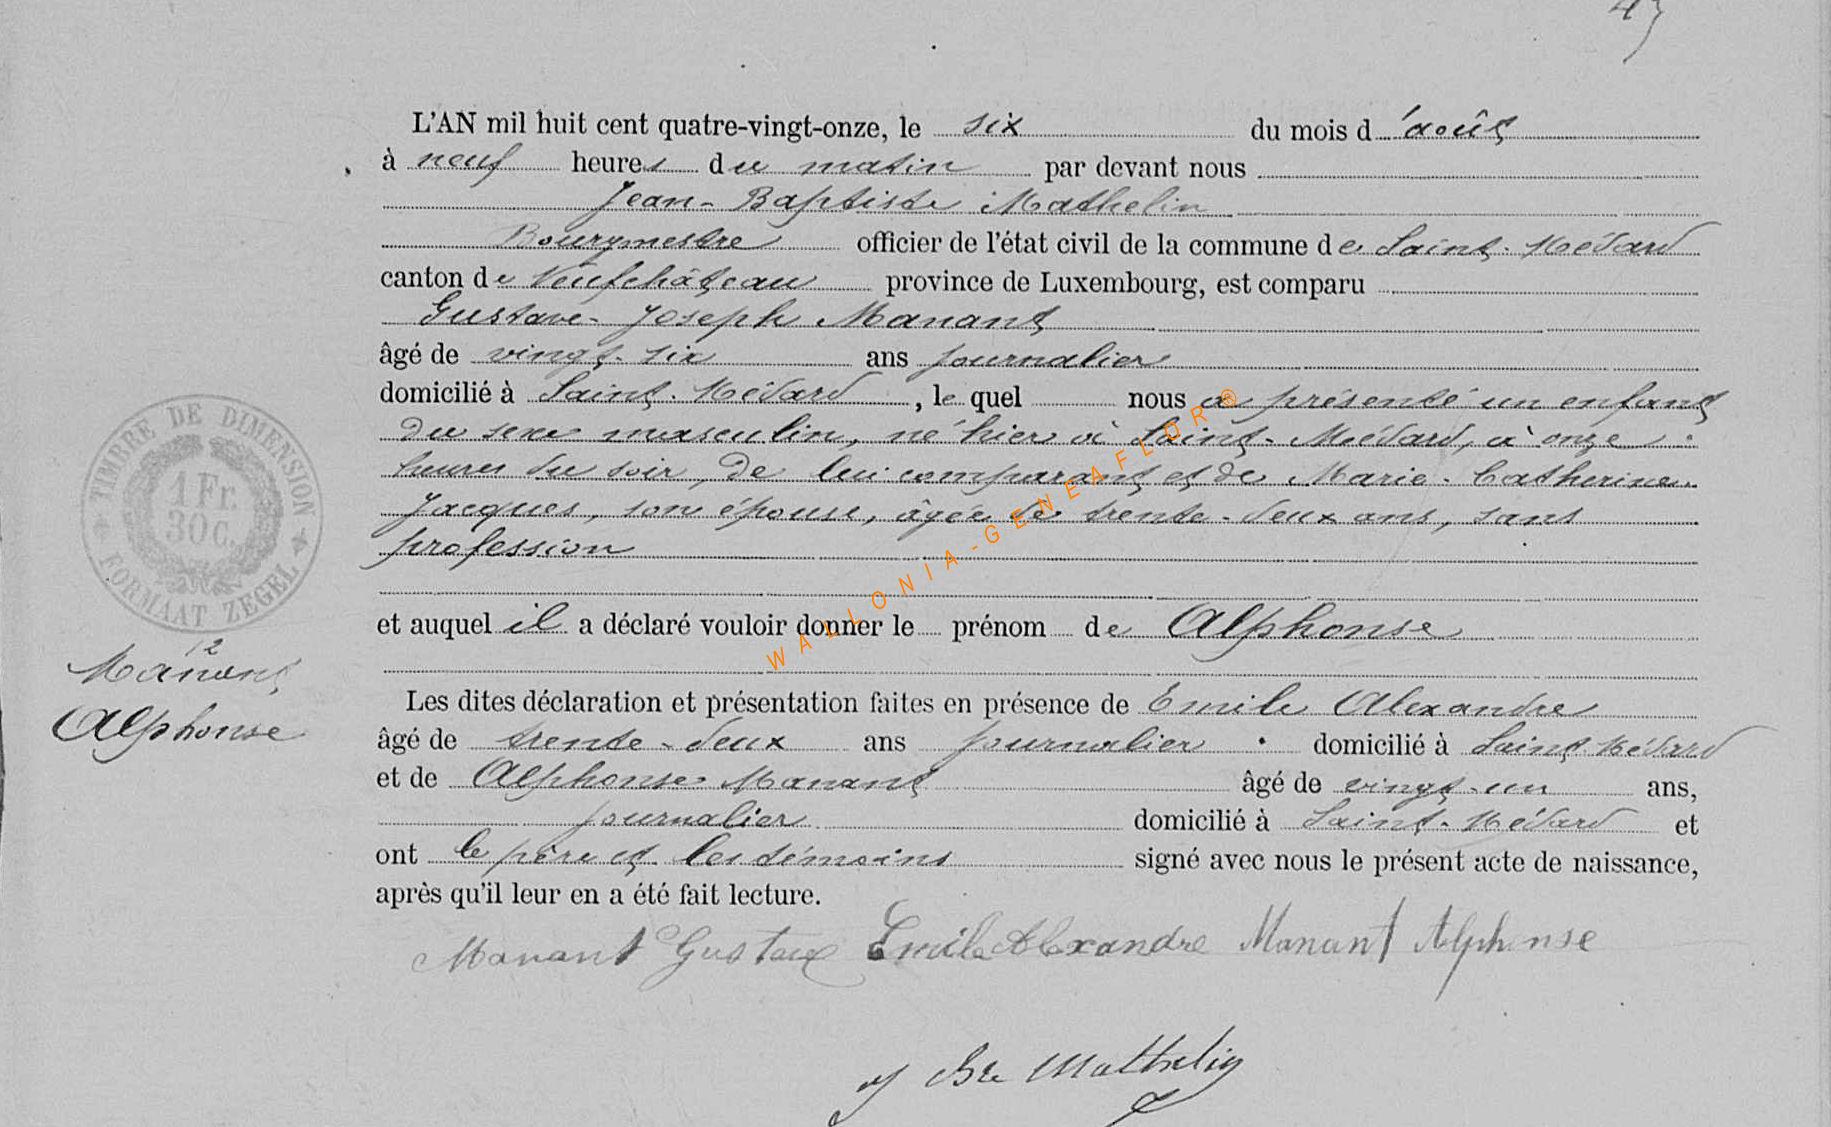 47
L'AN mil huit cent quatre-vingt-onze, le six du mois d'août
à neuf heures du matin par devant nous
Jean-Baptiste Mathelin
Bourgmestre officier de l'état civil de la commune de Saint-Médard
canton de Neufchâteau province de Luxembourg, est comparu
Gustave-Joseph Manant
âgé de vingt-six ans journalier
domicilié à Saint-Médard, le quel nous a présenté un enfant
du sexe masculin, né hier à Saint-Médard, à onze
heures du soir, de lui comparant et de Marie-Catherine
Jacques, son épouse, âgée de trente-deux ans, sans
profession
et auquel il a déclaré vouloir donner le prénom de Alphonse
Les dites déclaration et présentation faites en présence de Emile Alexandre
âgé de trente-deux ans journalier domicilié à Saint-Médard
et de Alphonse Manant âgé de vingt-un ans,
journalier domicilié à Saint-Médard et
ont le père et les témoins signé avec nous le présent acte de naissance,
après qu'il leur en a été fait lecture.
Manant Gustave Emile Alexandre Manant Alphonse
J Bte Mathelin
TIMBRE DE DIMENSION
1 Fr.
30 c.
FORMAAT ZEGEL
12
Manant
Alphonse
WALLONIA-GENEAFLOR®